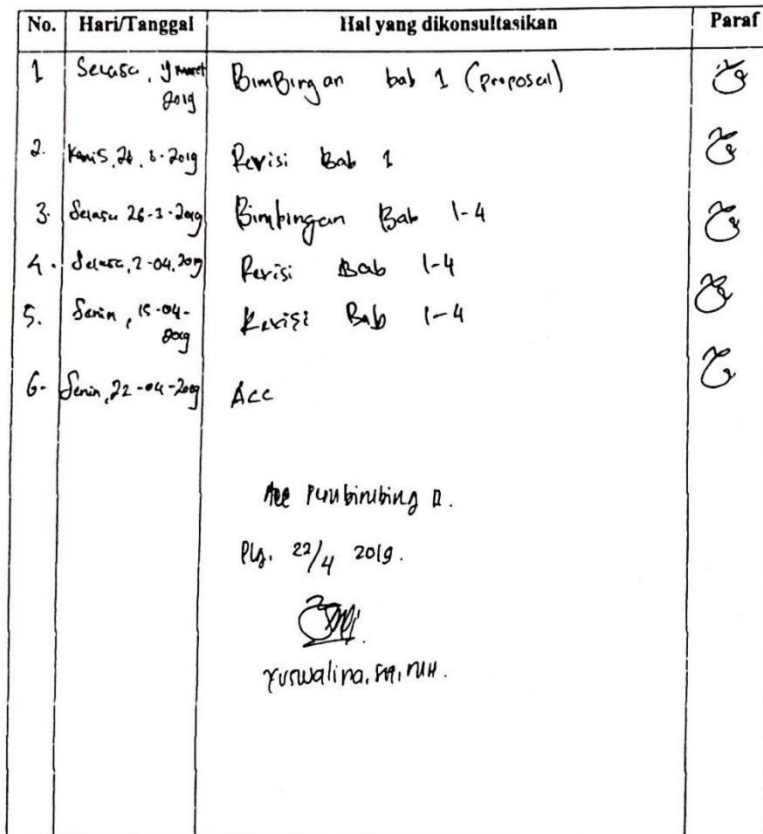 No. Hari/Tanggal Hal yang dikonsultasikan Paraf
1 Selasa, maret 2019 BimBingan bab 1 (proposal)
2. Kamis, 2019 Revisi Bab 1
3. Selasa 26-3-2019 Bimbingan Bab 1-4
4. Selasa, 2-04.2019 Revisi Bab 1-4
5. Senin, 15-04-2019 Revisi Bab 1-4
6. Senin, 22-04-2019 Acc
Acc Pembimbing II.
Plg. 22/4 2019.
Yuswalina, SH, MH.